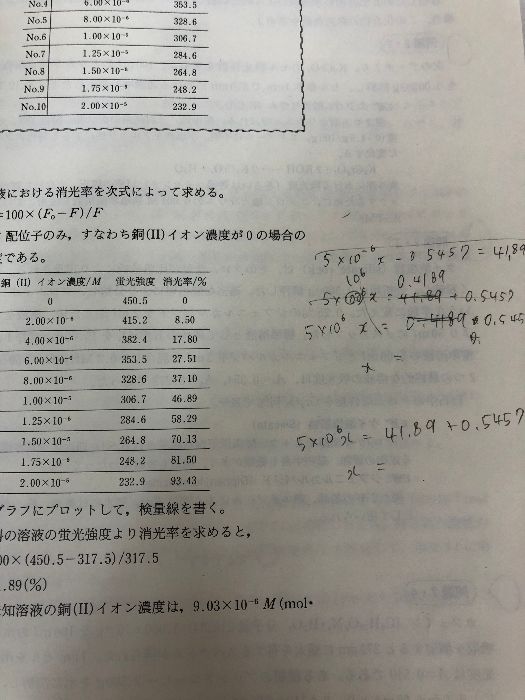 No.4 6.00×10⁻⁶ 353.5
No.5 8.00×10⁻⁶ 328.6
No.6 1.00×10⁻⁵ 306.7
No.7 1.25×10⁻⁵ 284.6
No.8 1.50×10⁻⁵ 264.8
No.9 1.75×10⁻⁵ 248.2
No.10 2.00×10⁻⁵ 232.9
液における消光率を次式によって求める。
=100×(F₀−F)/F
配位子のみ，すなわち銅(II)イオン濃度が0の場合の
度である。
銅(II) イオン濃度/M 蛍光強度 消光率/%
0 450.5 0
2.00×10⁻⁶ 415.2 8.50
4.00×10⁻⁶ 382.4 17.80
6.00×10⁻⁶ 353.5 27.51
8.00×10⁻⁶ 328.6 37.10
1.00×10⁻⁵ 306.7 46.89
1.25×10⁻⁵ 284.6 58.29
1.50×10⁻⁵ 264.8 70.13
1.75×10⁻⁵ 248.2 81.50
2.00×10⁻⁵ 232.9 93.43
グラフにプロットして，検量線を書く。
料の溶液の蛍光強度より消光率を求めると，
00×(450.5−317.5)/317.5
1.89(%)
知溶液の銅(II)イオン濃度は，9.03×10⁻⁶ M(mol·
5×10⁻⁶x − 0.5457 = 41.89
10⁶ 0.4189
x = 41.89 + 0.5457
5×10⁶ x = 0.4189 + 0.545
x =
5×10⁶x = 41.89 + 0.5457
x =